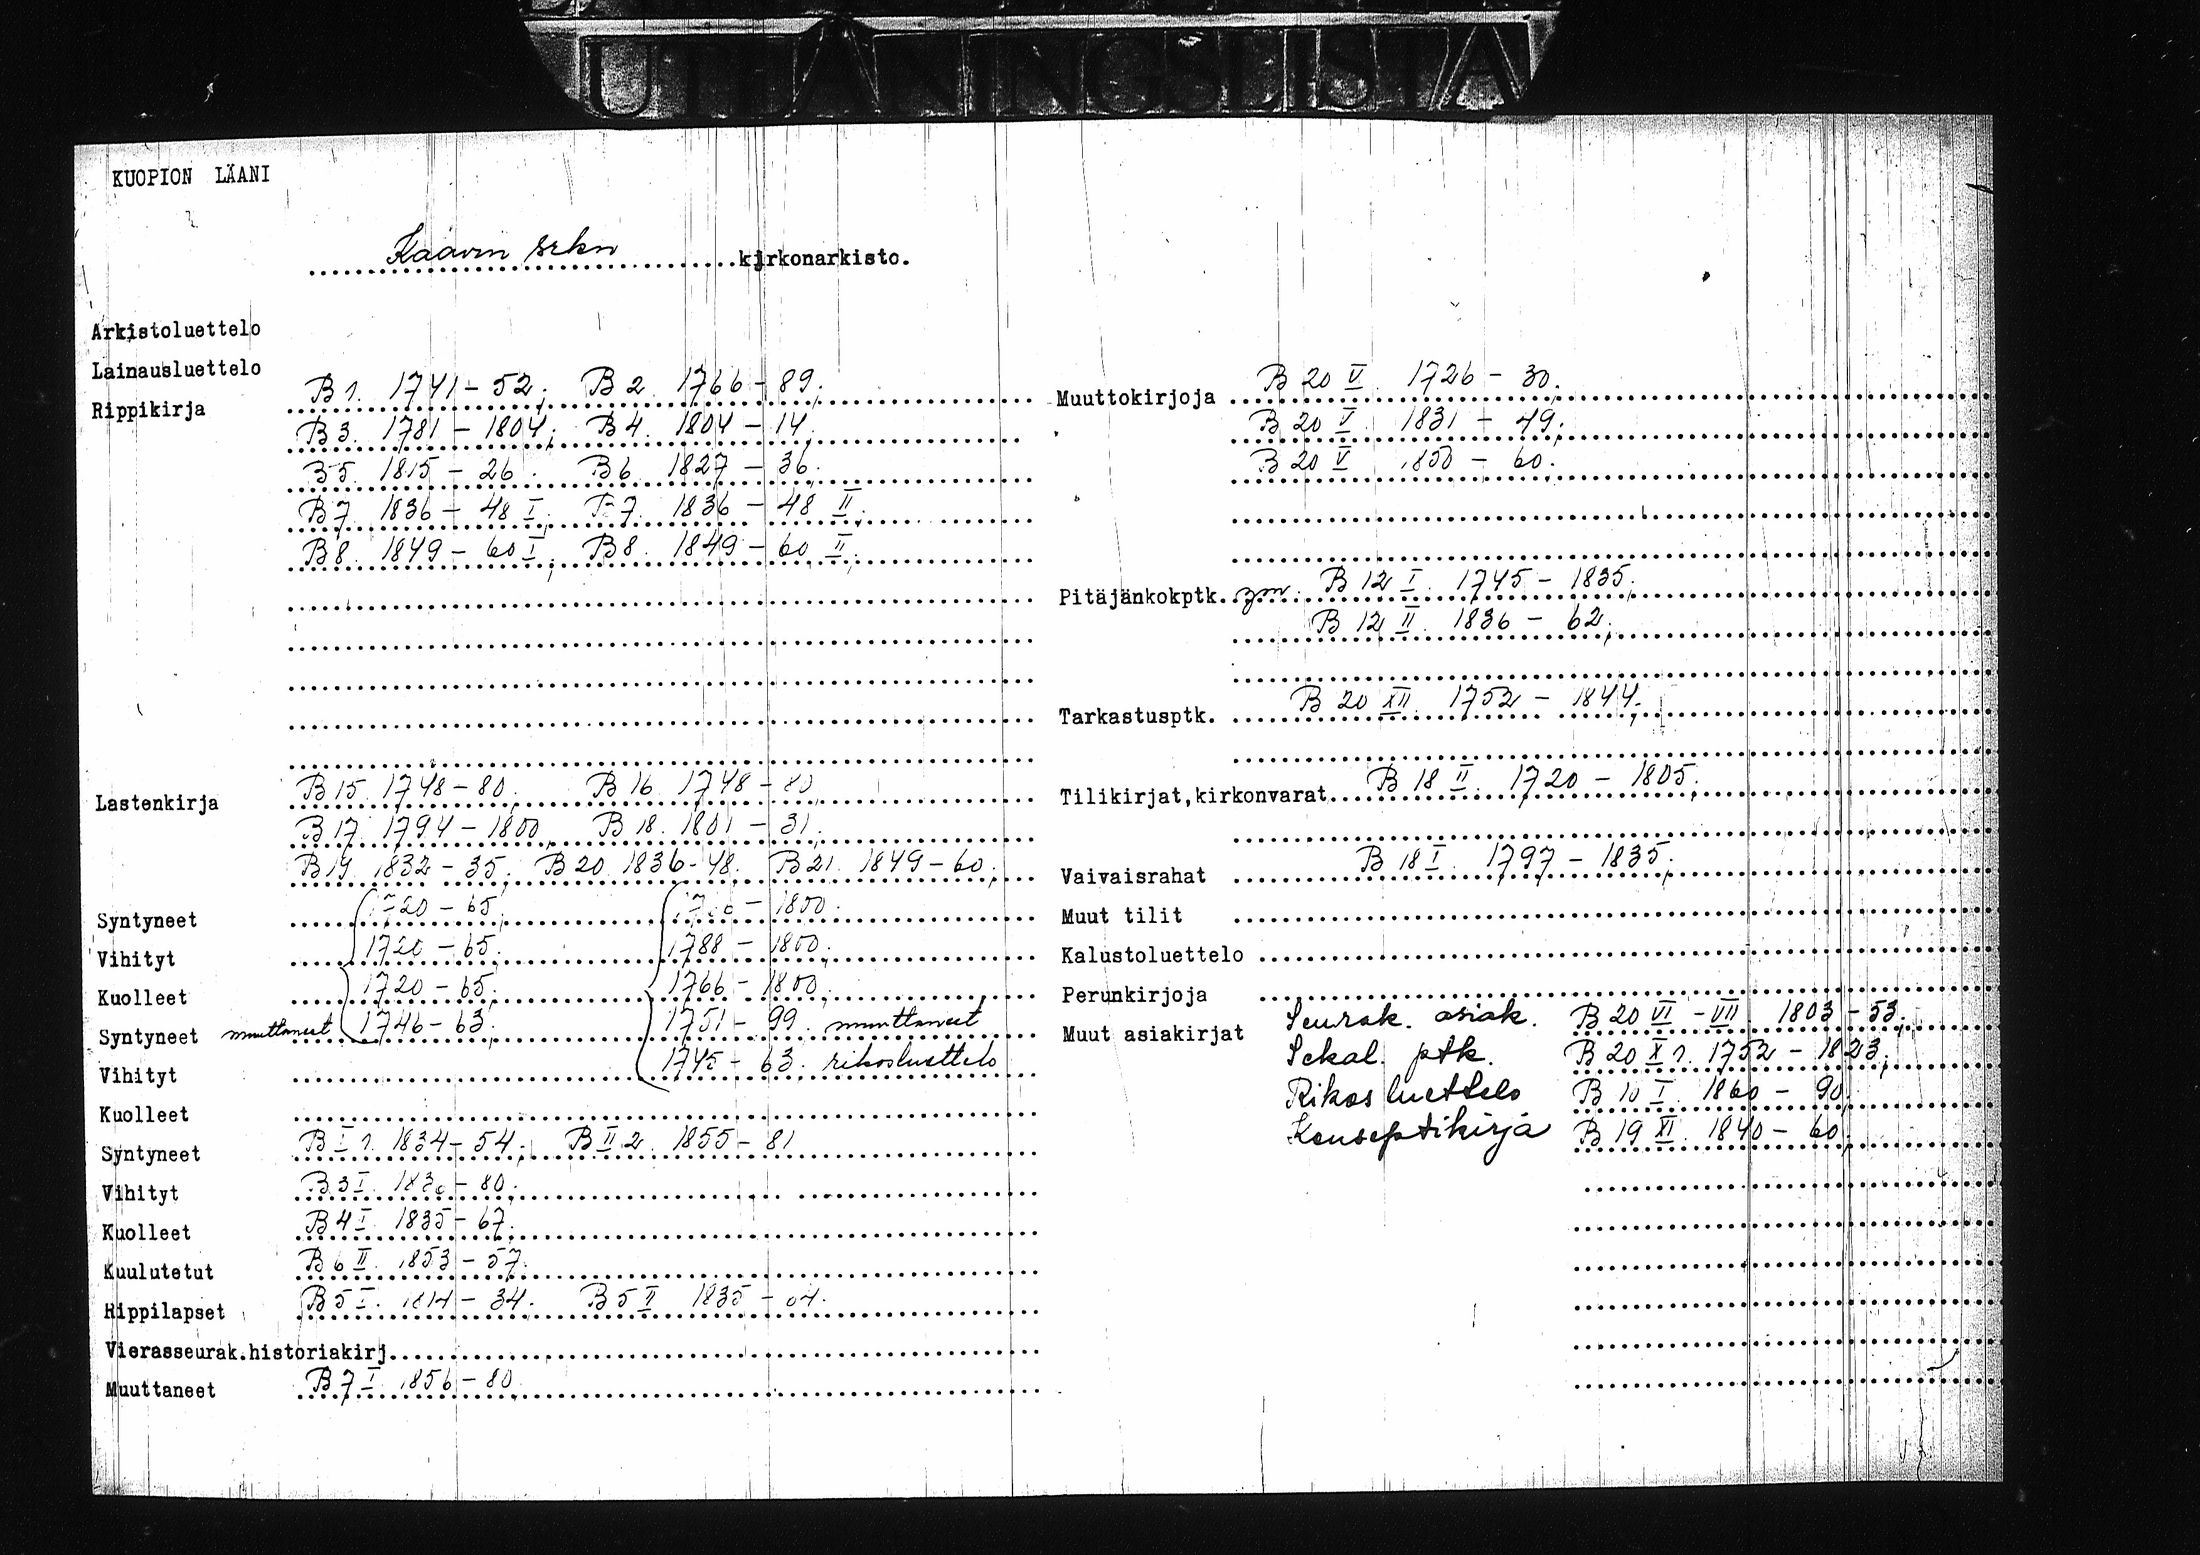 UTLÅNINGSLISTA
KUOPION LÄÄNI
Kaavin srkn kirkonarkisto.
Arkistoluettelo
Lainausluettelo
Rippikirja B1. 1741-52; B2. 1766-89;
B3. 1781-1804; B4. 1804-14;
B5. 1815-26. B6. 1827-36.
B7. 1836-48 I; B7. 1836-48 II;
B8. 1849-60 I; B8. 1849-60 II;
Lastenkirja B15. 1748-80; B16. 1748-80
B17. 1794-1800 B18. 1801-31;
B19. 1832-35; B20. 1836-48. B21. 1849-60;
Syntyneet 1720-65; -1800.
Vihityt 1720-65; 1788-1800;
Kuolleet 1720-65; 1766-1800;
Syntyneet muuttaneet 1746-63; 1751-99. muuttaneet
Vihityt 1745-63. rikosluettelo
Kuolleet
Syntyneet B I 1. 1834-54; B II 2. 1855-81
Vihityt B3 I. -80;
Kuolleet B4 I. 1835-67.
Kuulutetut B6 II. 1853-57.
Rippilapset B5 I. 1814-34. B5 II 1835-
Vierasseurak.historiakirj.
Muuttaneet B7 I. 1856-80.
Muuttokirjoja B20 V. 1726-30;
B20 V. 1831-49;
B20 V 1850-60.
Pitäjänkokptk. ym. B12 I. 1745-1835;
B12 II. 1836-62;
Tarkastusptk. B20 XII. 1752-1844;
Tilikirjat,kirkonvarat B18 II. 1720-1805;
Vaivaisrahat B18 I. 1797-1835;
Muut tilit
Kalustoluettelo
Perunkirjoja
Muut asiakirjat Seurak. asiak. B20 VI-VII. 1803-53;
Sekal. ptk. B20 X 1. 1752-1823;
Rikosluettelo B10 I. 1860-90
Konseptikirja B19 XI. 1840-60